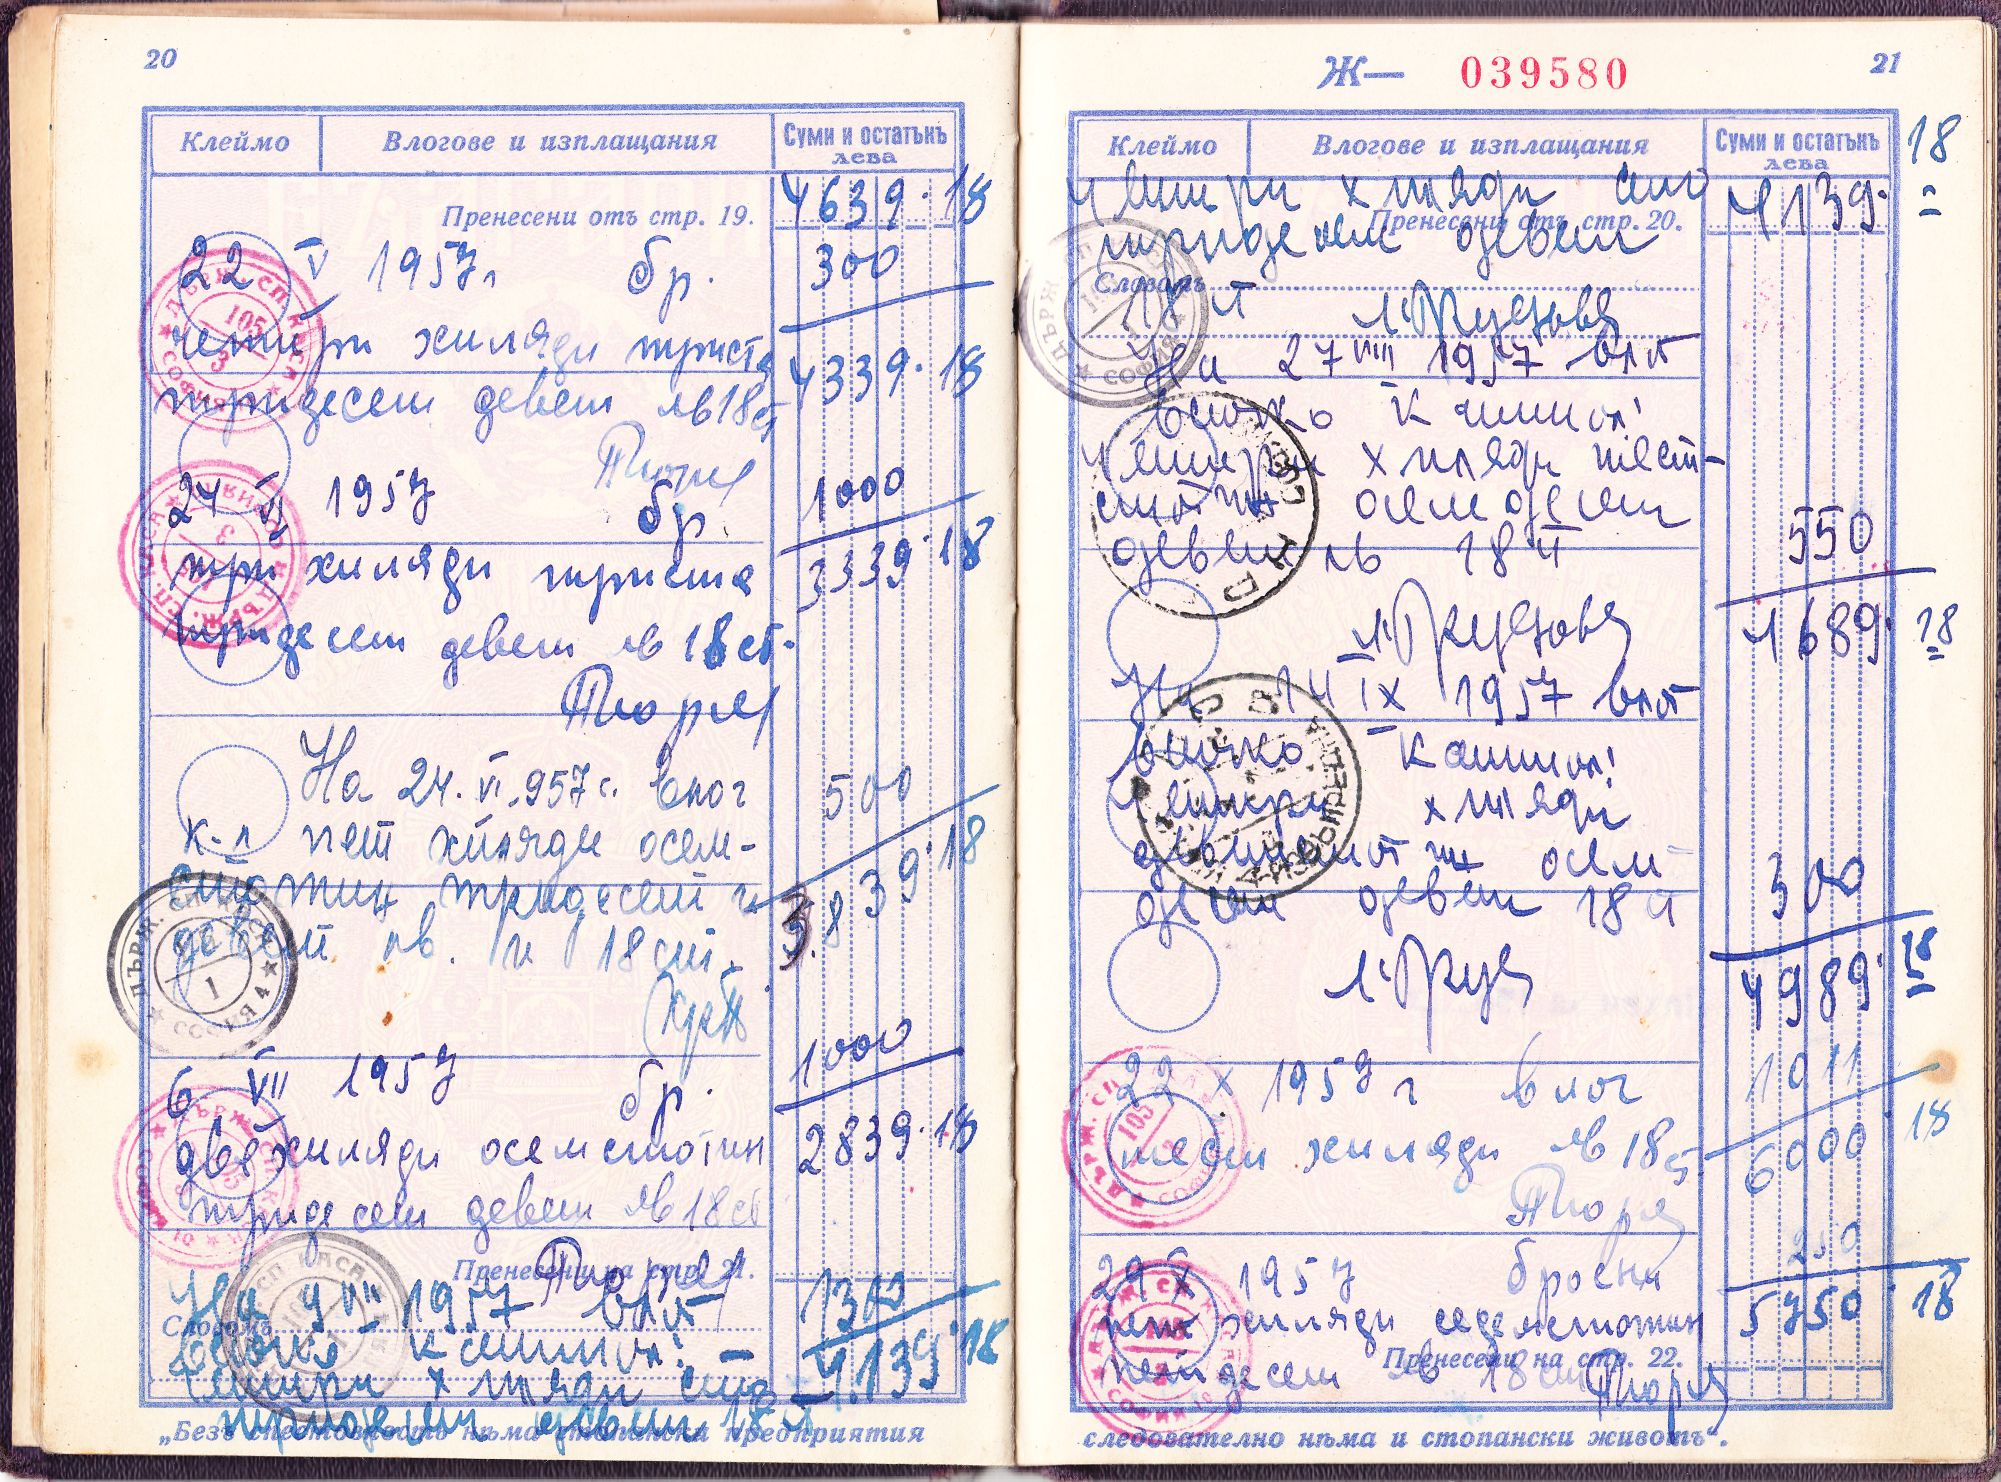 20
Клеймо Влогове и изплащания Суми и остатъкъ лева
Пренесени отъ стр. 19. 4639.18
22 V 1957 г бр. 300
четири хиляди триста 4339.18
тридесет девет лв 18 ст
24 VI 1957 бр 1000
три хиляди триста 3339.18
тридесет девет лв 18 ст.
На 24.VI.957 г. влог 500
к-л пет хиляди осем-
стотин тридесет и 3.839.18
девет лв. и 18 ст.
6 VII 1957 бр. 1000
две хиляди осемстотин 2839.18
тридесет девет лв 18 ст
Пренесени на стр. 21.
На 9 VII 1957 влог 1300
Словомъ
четири хиляди сто 4.139.18
тридесет девет 18 ст
„Безъ спестовность нѣма стопански предприятия
Ж— 039580 21
Клеймо Влогове и изплащания Суми и остатъкъ лева 18
четири хиляди сто 4139.
Пренесени отъ стр. 20.
тридесет девет
Словомъ
18 ст
На 27 VIII 1957 влог
четири хиляди шест-
стотин осемдесет 550
девет лв 18 ст
4689. 18
На 14 IX 1957 влог
четири хиляди
деветстотин осем
десет девет 18 ст 300
4989. 18
22 X 1957 г влог 1011
шест хиляди лв 18 ст. 6000 18
29 X 1957 броени 250
пет хиляди седемстотин 5750 18
Пренесени на стр. 22.
петдесет лв 18 ст
следователно нѣма и стопански животъ“.
ДЪРЖ. СП. КАСА
СОФИЯ